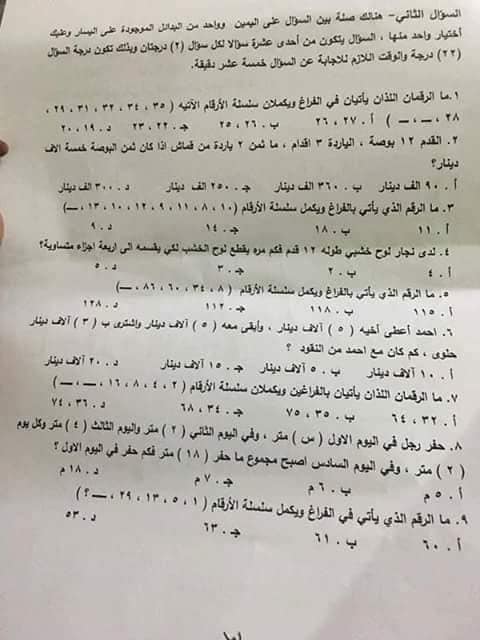 السؤال الثاني- هنالك صلة بين السؤال على اليمين وواحد من البدائل الموجودة على اليسار وعليك
أختيار واحد منها ، السؤال يتكون من أحدى عشرة سؤالا لكل سؤال (٢) درجتان وبذلك تكون درجة السؤال
(٢٢) درجة والوقت اللازم للاجابة عن السؤال خمسة عشر دقيقة.
١.ما الرقمان اللذان يأتيان في الفراغ ويكملان سلسلة الأرقام الآتيه ( ٣٥ ، ٣٤ ، ٣٢ ، ٣١ ، ٢٩ ،
٢٨ ، ــ ، ــ ) أ. ٢٧ ، ٢٦ ب. ٢٦ ، ٢٥ جـ. ٢٢ ، ٢٣ د. ١٩ ، ٢٠
٢. القدم ١٢ بوصة ، الياردة ٣ اقدام ، ما ثمن ٢ ياردة من قماش اذا كان ثمن البوصة خمسة الاف
دينار؟
أ . ٩٠ الف دينار ب . ٣٦٠ الف دينار جـ . ٢٥٠ الف دينار د. ٣٠٠ الف دينار
٣. ما الرقم الذي يأتي بالفراغ ويكمل سلسلة الأرقام (١٠ ، ٨ ، ١١ ، ٩ ، ١٢ ، ١٠ ، ١٣ ، ــ)
أ . ١١ ب . ١٨ جـ . ١٤ د. ٩
٤. لدى نجار لوح خشبي طوله ١٢ قدم فكم مره يقطع لوح الخشب لكي يقسمه الى اربعة اجزاء متساوية؟
أ . ٤ ب . ٢ جـ . ٣ د. ٥
٥. ما الرقم الذي يأتي بالفراغ ويكمل سلسلة الأرقام ( ٨ ، ٣٤ ، ٦٠ ، ٨٦ ، ــ)
أ . ١١٥ ب . ١١٨ جـ . ١١٢ د. ١٢٨
٦. احمد أعطى أخيه ( ٥ ) آلاف دينار ، وأبقى معه ( ٥ ) آلاف دينار واشترى ب ( ٣ ) آلاف دينار
حلوى ، كم كان مع احمد من النقود ؟
أ . ١٠ آلاف دينار ب . ٥ آلاف دينار جـ . ١٥ آلاف دينار د. ٢٠ آلاف دينار
٧. ما الرقمان اللذان يأتيان بالفراغين ويكملان سلسلة الأرقام ( ٢ ، ٤ ، ٨ ، ١٦ ، ــ ، ــ )
أ . ٣٢ ، ٦٤ ب . ٣٥ ، ٧٥ جـ . ٣٤ ، ٦٨ د. ٣٦ ، ٧٤
٨. حفر رجل في اليوم الاول ( س ) متر ، وفي اليوم الثاني ( ٢ ) متر واليوم الثالث ( ٤ ) متر وكل يوم
( ٢ ) متر ، وفي اليوم السادس أصبح مجموع ما حفر ( ١٨ ) متر فكم حفر في اليوم الاول ؟
أ . ٥ م ب . ٦ م جـ . ٧ م د. ١٨ م
٩. ما الرقم الذي يأتي في الفراغ ويكمل سلسلة الأرقام ( ١ ، ٥ ، ١٣ ، ٢٩ ، ــ ؟ )
أ . ٦٠ ب . ٦١ جـ . ٦٣ د. ٥٣